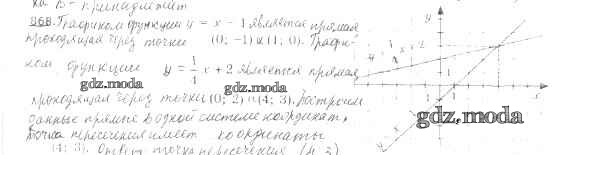 ка В - принадлежит
868. Графиком функции y = x - 1 является прямая
проходящая через точки (0; -1) и (1; 0). Графи-
ком функции y = 1/4 x + 2 является прямая
gdz.moda gdz.moda
проходящая через точки (0; 2) и (4; 3). Построим
данные прямые в одной системе координат,
точка пересечения имеет координаты
(4; 3). Ответ: точка пересечения (4; 3)
y
y = 1/4 x + 2
1
1
x
gdz.moda